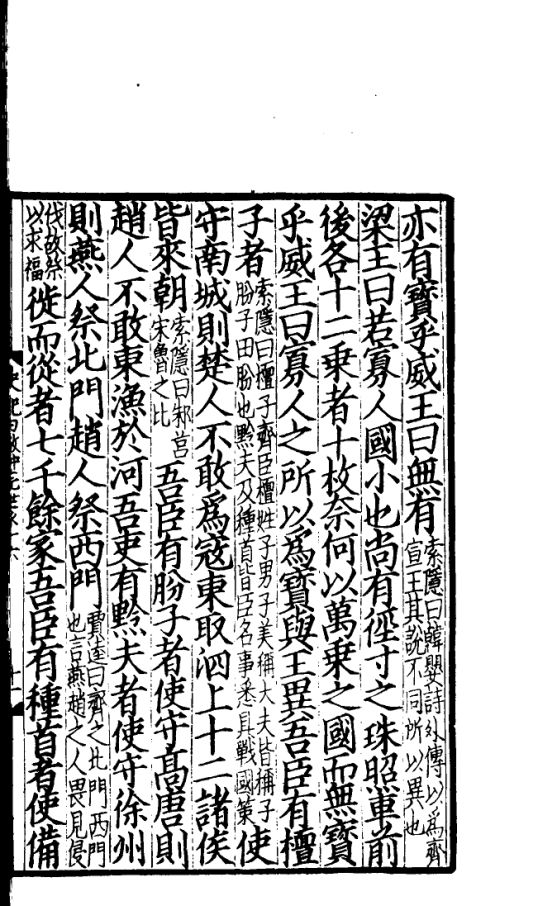 亦有寶乎威王曰無有索隱曰韓嬰詩外傳以為齊宣王其說不同所以異也
梁王曰若寡人國小也尚有徑寸之珠照車前
後各十二乘者十枚奈何以萬乘之國而無寶
乎威王曰寡人之所以為寶與王異吾臣有檀
子者索隱曰檀子齊臣檀姓子男子美稱大夫皆稱子盼子田盼也黔夫及種首皆臣名事悉具戰國策使
守南城則楚人不敢為寇東取泗上十二諸侯
皆來朝索隱曰邾莒宋魯之比吾臣有盼子者使守高唐則
趙人不敢東漁於河吾吏有黔夫者使守徐州
則燕人祭北門趙人祭西門賈逵曰齊之北門西門也言燕趙之人畏見侵
伐故祭以求福徙而從者七千餘家吾臣有種首者使備